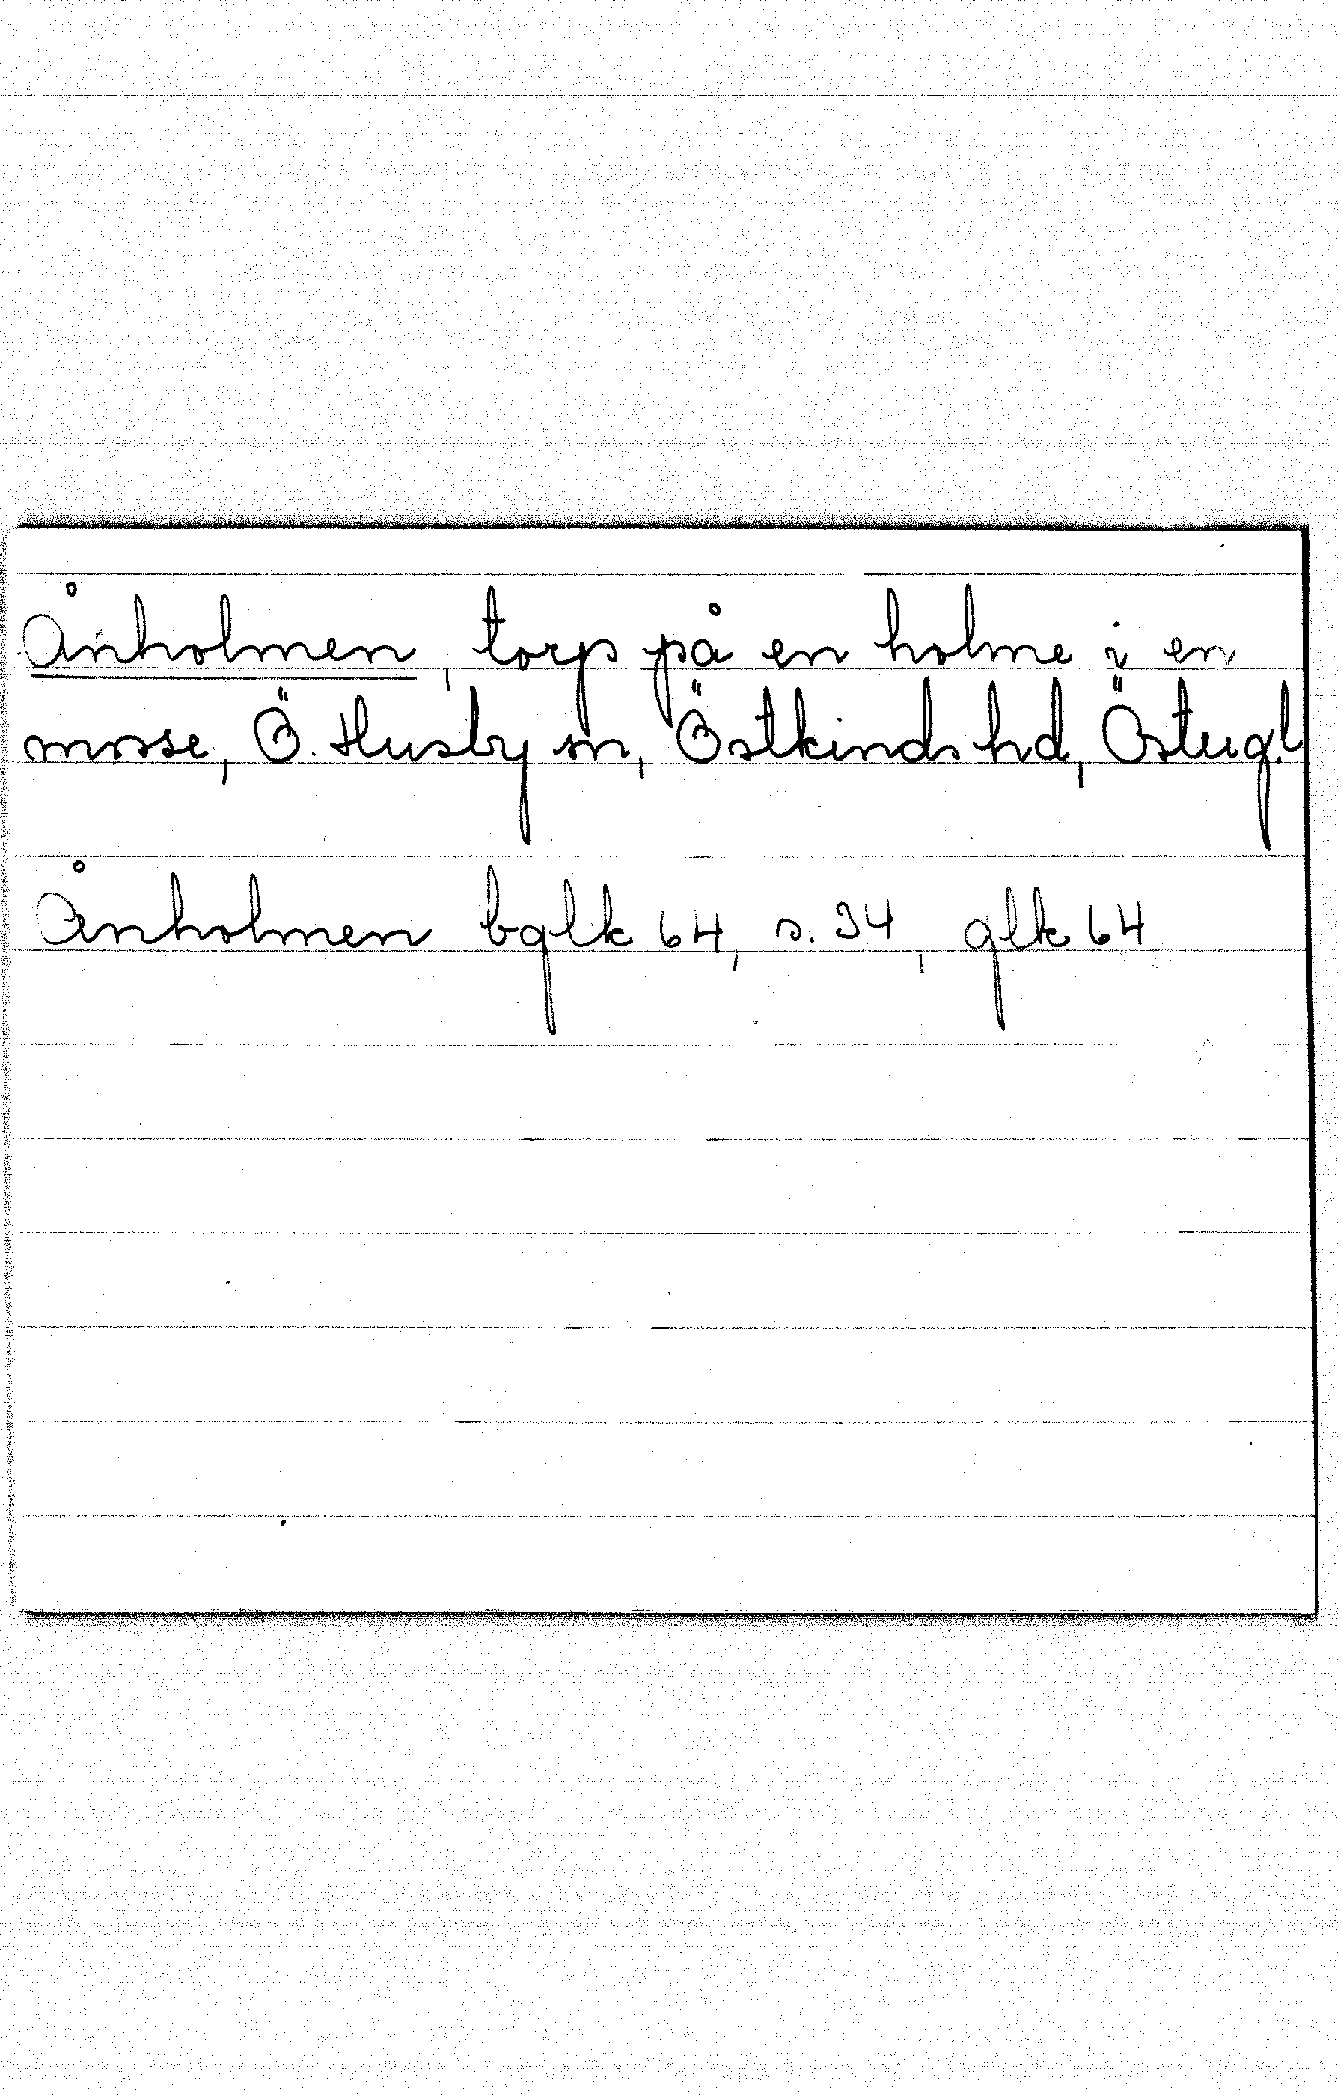 Ånholmen, torp på en holme i en
mosse, Ö. Husby sn, Östkinds hd, Östergl.
Ånholmen bglk 64, s. 34, glk 64